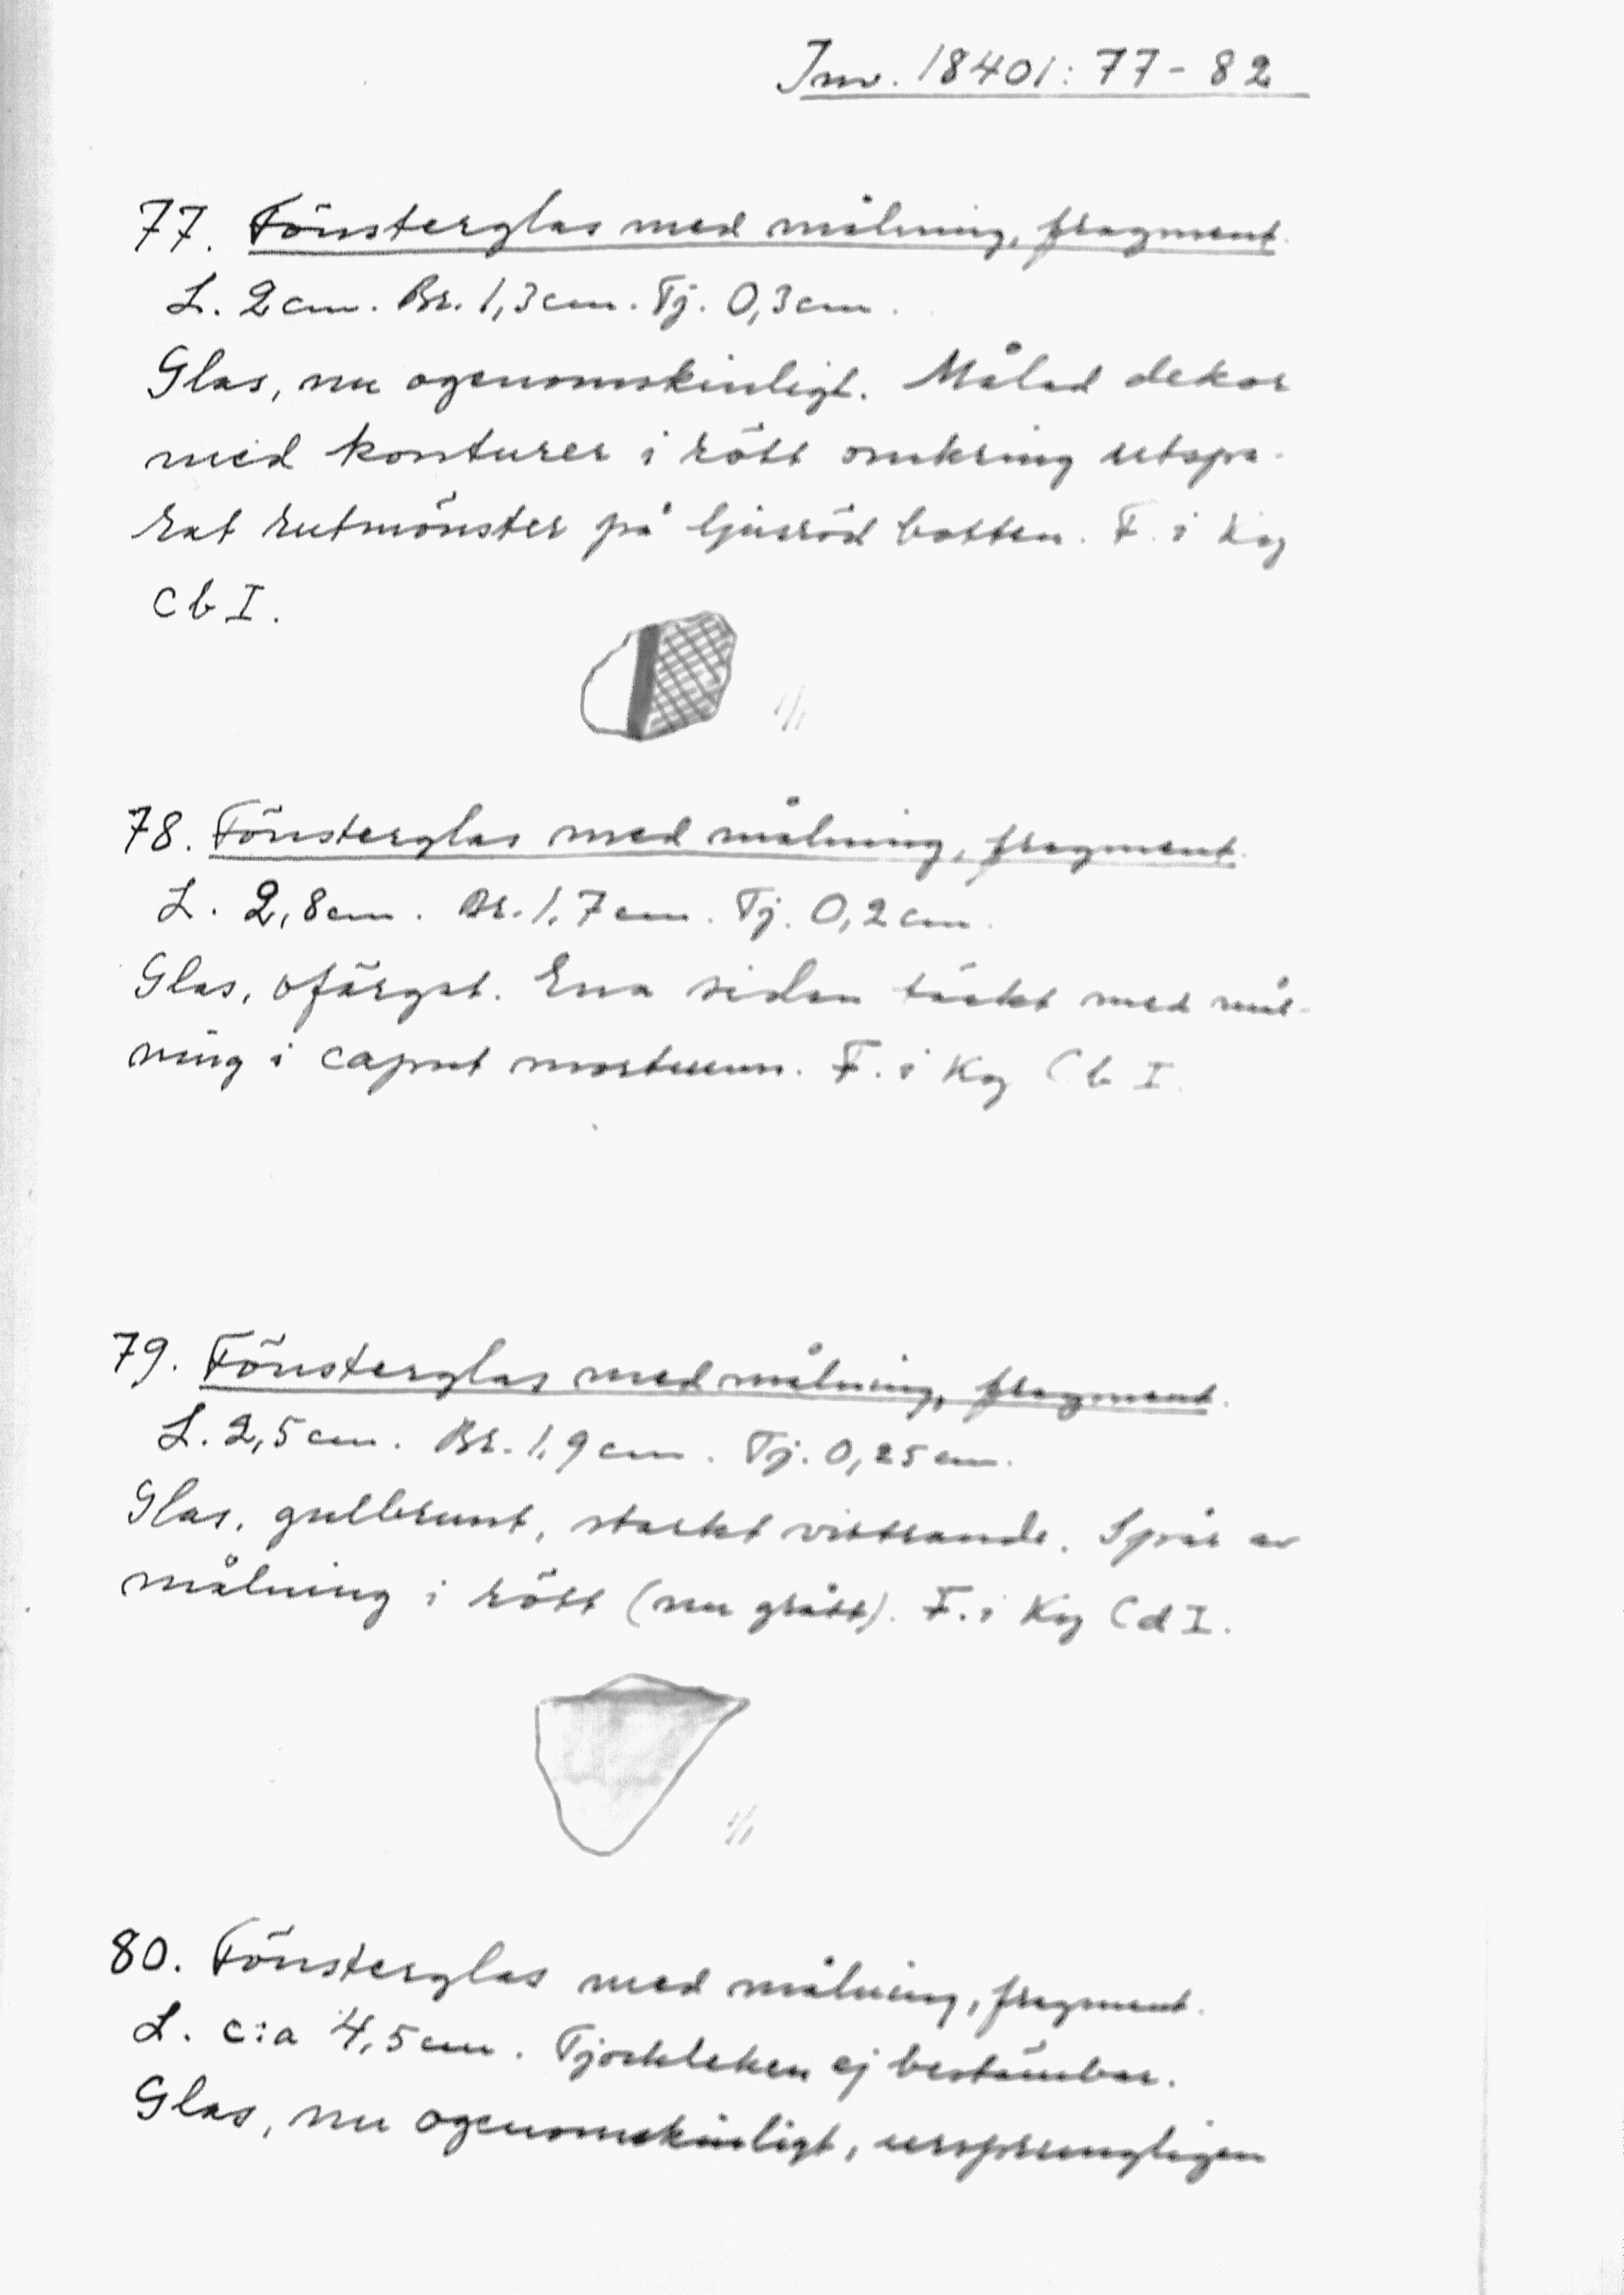 Inv. 18401: 77-82
77. Fönsterglas med målning, fragment.
L. 2 cm. Br. 1,3 cm. Tj. 0,3 cm.
Glas, nu ogenomskinligt. Målad dekor
med konturer i rött omkring utspa-
rat rutmönster på ljusröd botten. F. i Kg
C b I.
1/1
78. Fönsterglas med målning, fragment.
L. 2,8 cm. Br. 1,7 cm. Tj. 0,2 cm.
Glas, ofärgat. Ena sidan täckt med mål-
ning i caput mortuum. F. i Kg C b I.
79. Fönsterglas med målning, fragment.
L. 2,5 cm. Br. 1,9 cm. Tj. 0,25 cm.
Glas, gulbrunt, starkt vittrande. Spår av
målning i rött (nu grått). F. i Kg C d I.
1/1
80. Fönsterglas med målning, fragment.
L. c:a 4,5 cm. Tjockleken ej bestämbar.
Glas, nu ogenomskinligt, ursprungligen